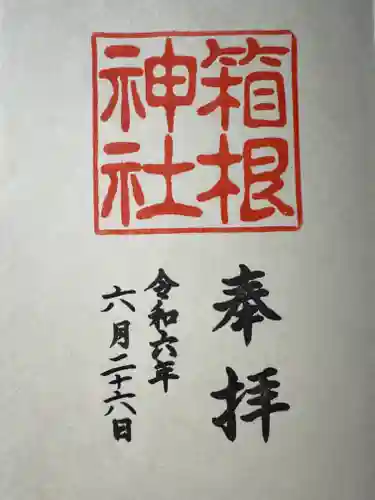 箱根
神社
奉拝
令和六年
六月二十六日